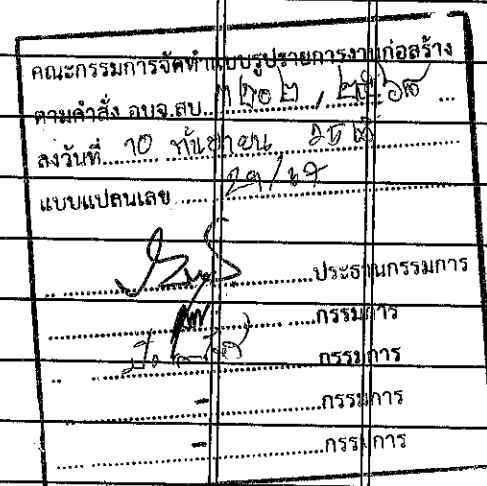 คณะกรรมการจัดทำแบบรูปรายการงานก่อสร้าง
ตามคำสั่ง อบจ.สบ.
ลงวันที่ 10 กันยายน
แบบแปลนเลข
ประธานกรรมการ
กรรมการ
กรรมการ
- กรรมการ
- กรรมการ